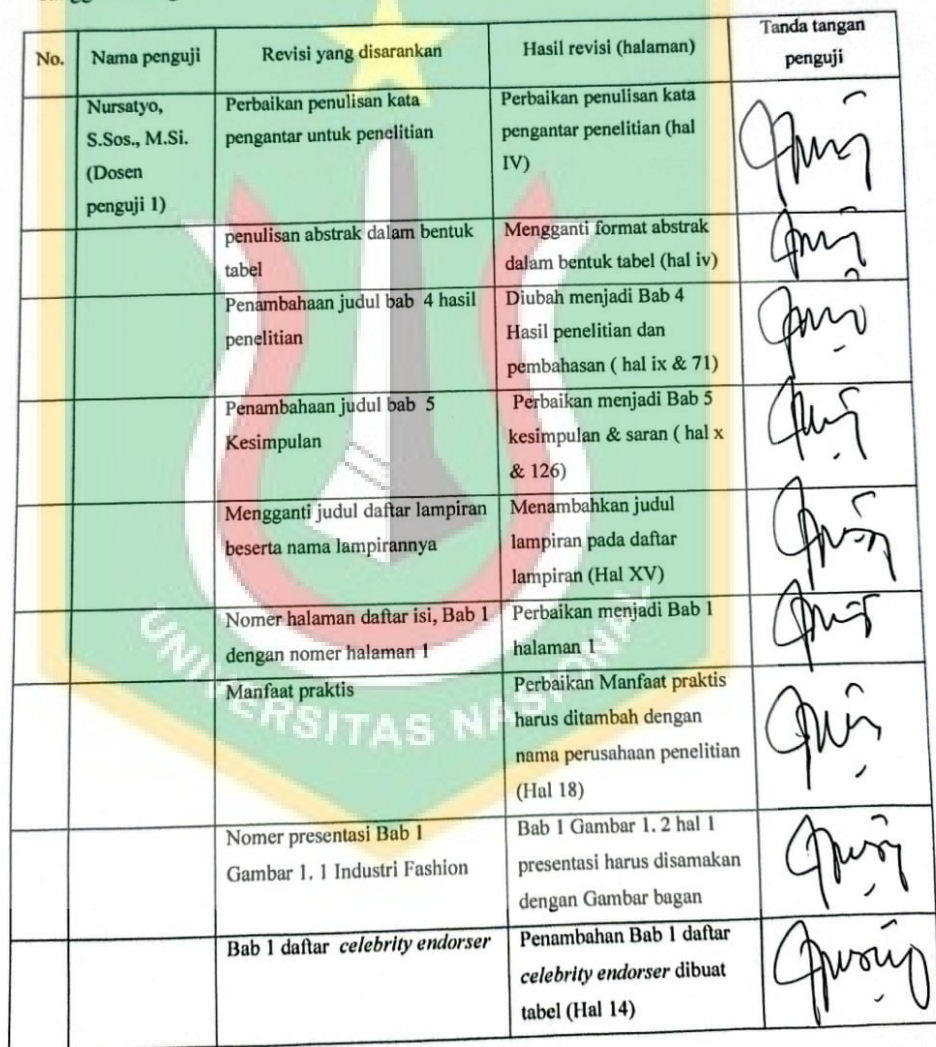 No.
Nama penguji
Revisi yang disarankan
Hasil revisi (halaman)
Tanda tangan
penguji
Nursatyo,
S.Sos., M.Si.
(Dosen
penguji 1)
Perbaikan penulisan kata
pengantar untuk penelitian
Perbaikan penulisan kata
pengantar penelitian (hal
IV)
penulisan abstrak dalam bentuk
tabel
Mengganti format abstrak
dalam bentuk tabel (hal iv)
Penambahaan judul bab 4 hasil
penelitian
Diubah menjadi Bab 4
Hasil penelitian dan
pembahasan ( hal ix & 71)
Penambahaan judul bab 5
Kesimpulan
Perbaikan menjadi Bab 5
kesimpulan & saran ( hal x
& 126)
Mengganti judul daftar lampiran
beserta nama lampirannya
Menambahkan judul
lampiran pada daftar
lampiran (Hal XV)
Nomer halaman daftar isi, Bab 1
dengan nomer halaman 1
Perbaikan menjadi Bab 1
halaman 1
Manfaat praktis
Perbaikan Manfaat praktis
harus ditambah dengan
nama perusahaan penelitian
(Hal 18)
Nomer presentasi Bab 1
Gambar 1. 1 Industri Fashion
Bab 1 Gambar 1. 2 hal 1
presentasi harus disamakan
dengan Gambar bagan
Bab 1 daftar celebrity endorser
Penambahan Bab 1 daftar
celebrity endorser dibuat
tabel (Hal 14)
UNIVERSITAS NASIONAL